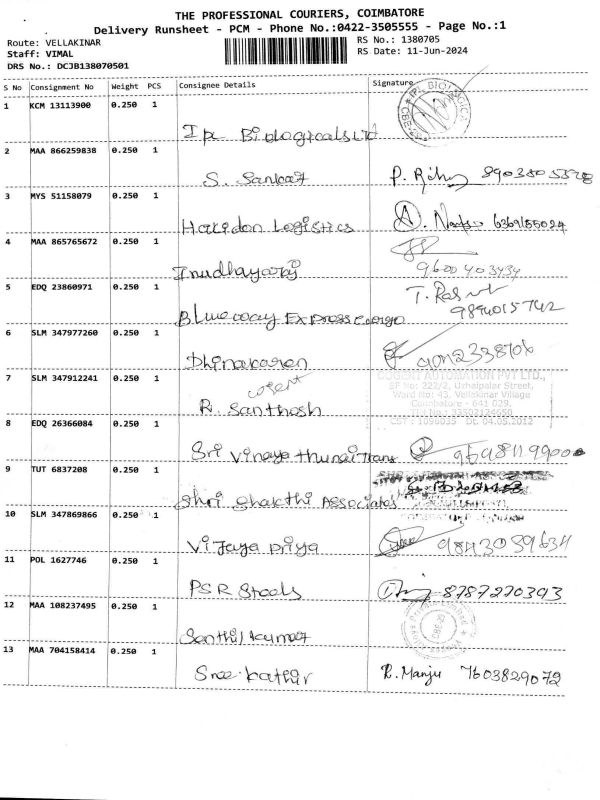 THE PROFESSIONAL COURIERS, COIMBATORE
Delivery Runsheet - PCM - Phone No.:0422-3505555 - Page No.:1
Route: VELLAKINAR
RS No.: 1380705
Staff: VIMAL
RS Date: 11-Jun-2024
DRS No.: DCJB138070501
S No Consignment No Weight PCS Consignee Details Signature
1 KCM 13113900 0.250 1
Ipe Biologicals Ltd
2 MAA 866259838 0.250 1
S. Sankar P.
3 MYS 51158079 0.250 1
Haridon Logistics 6369155024
4 MAA 865765672 0.250 1
Irudhayaraj 9600403434
5 EDQ 23860971 0.250 1
Blueway Express cargo T. 9894015742
6 SLM 347977260 0.250 1
Dhinakaran
7 SLM 347912241 0.250 1
cogent
R. Santhosh
COGENT AUTOMATION PVT LTD.,
SF No: 222/2, Urhaipalar Street,
Ward No: 43, Vellakinar Village
Coimbatore - 641 029.
CST: 1099035 Dt. 04.05.2012
8 EDQ 26366084 0.250 1
Sri Vinaya thunai Trans
9 TUT 6837208 0.250 1
Shri Shakthi Associates
10 SLM 347869866 0.250 1
Vijaya Priya 9843059634
11 POL 1627746 0.250 1
PSR Steels 8787270393
12 MAA 108237495 0.250 1
Senthil kumar
13 MAA 704158414 0.250 1
Sree kathir R. Manju 7603829072